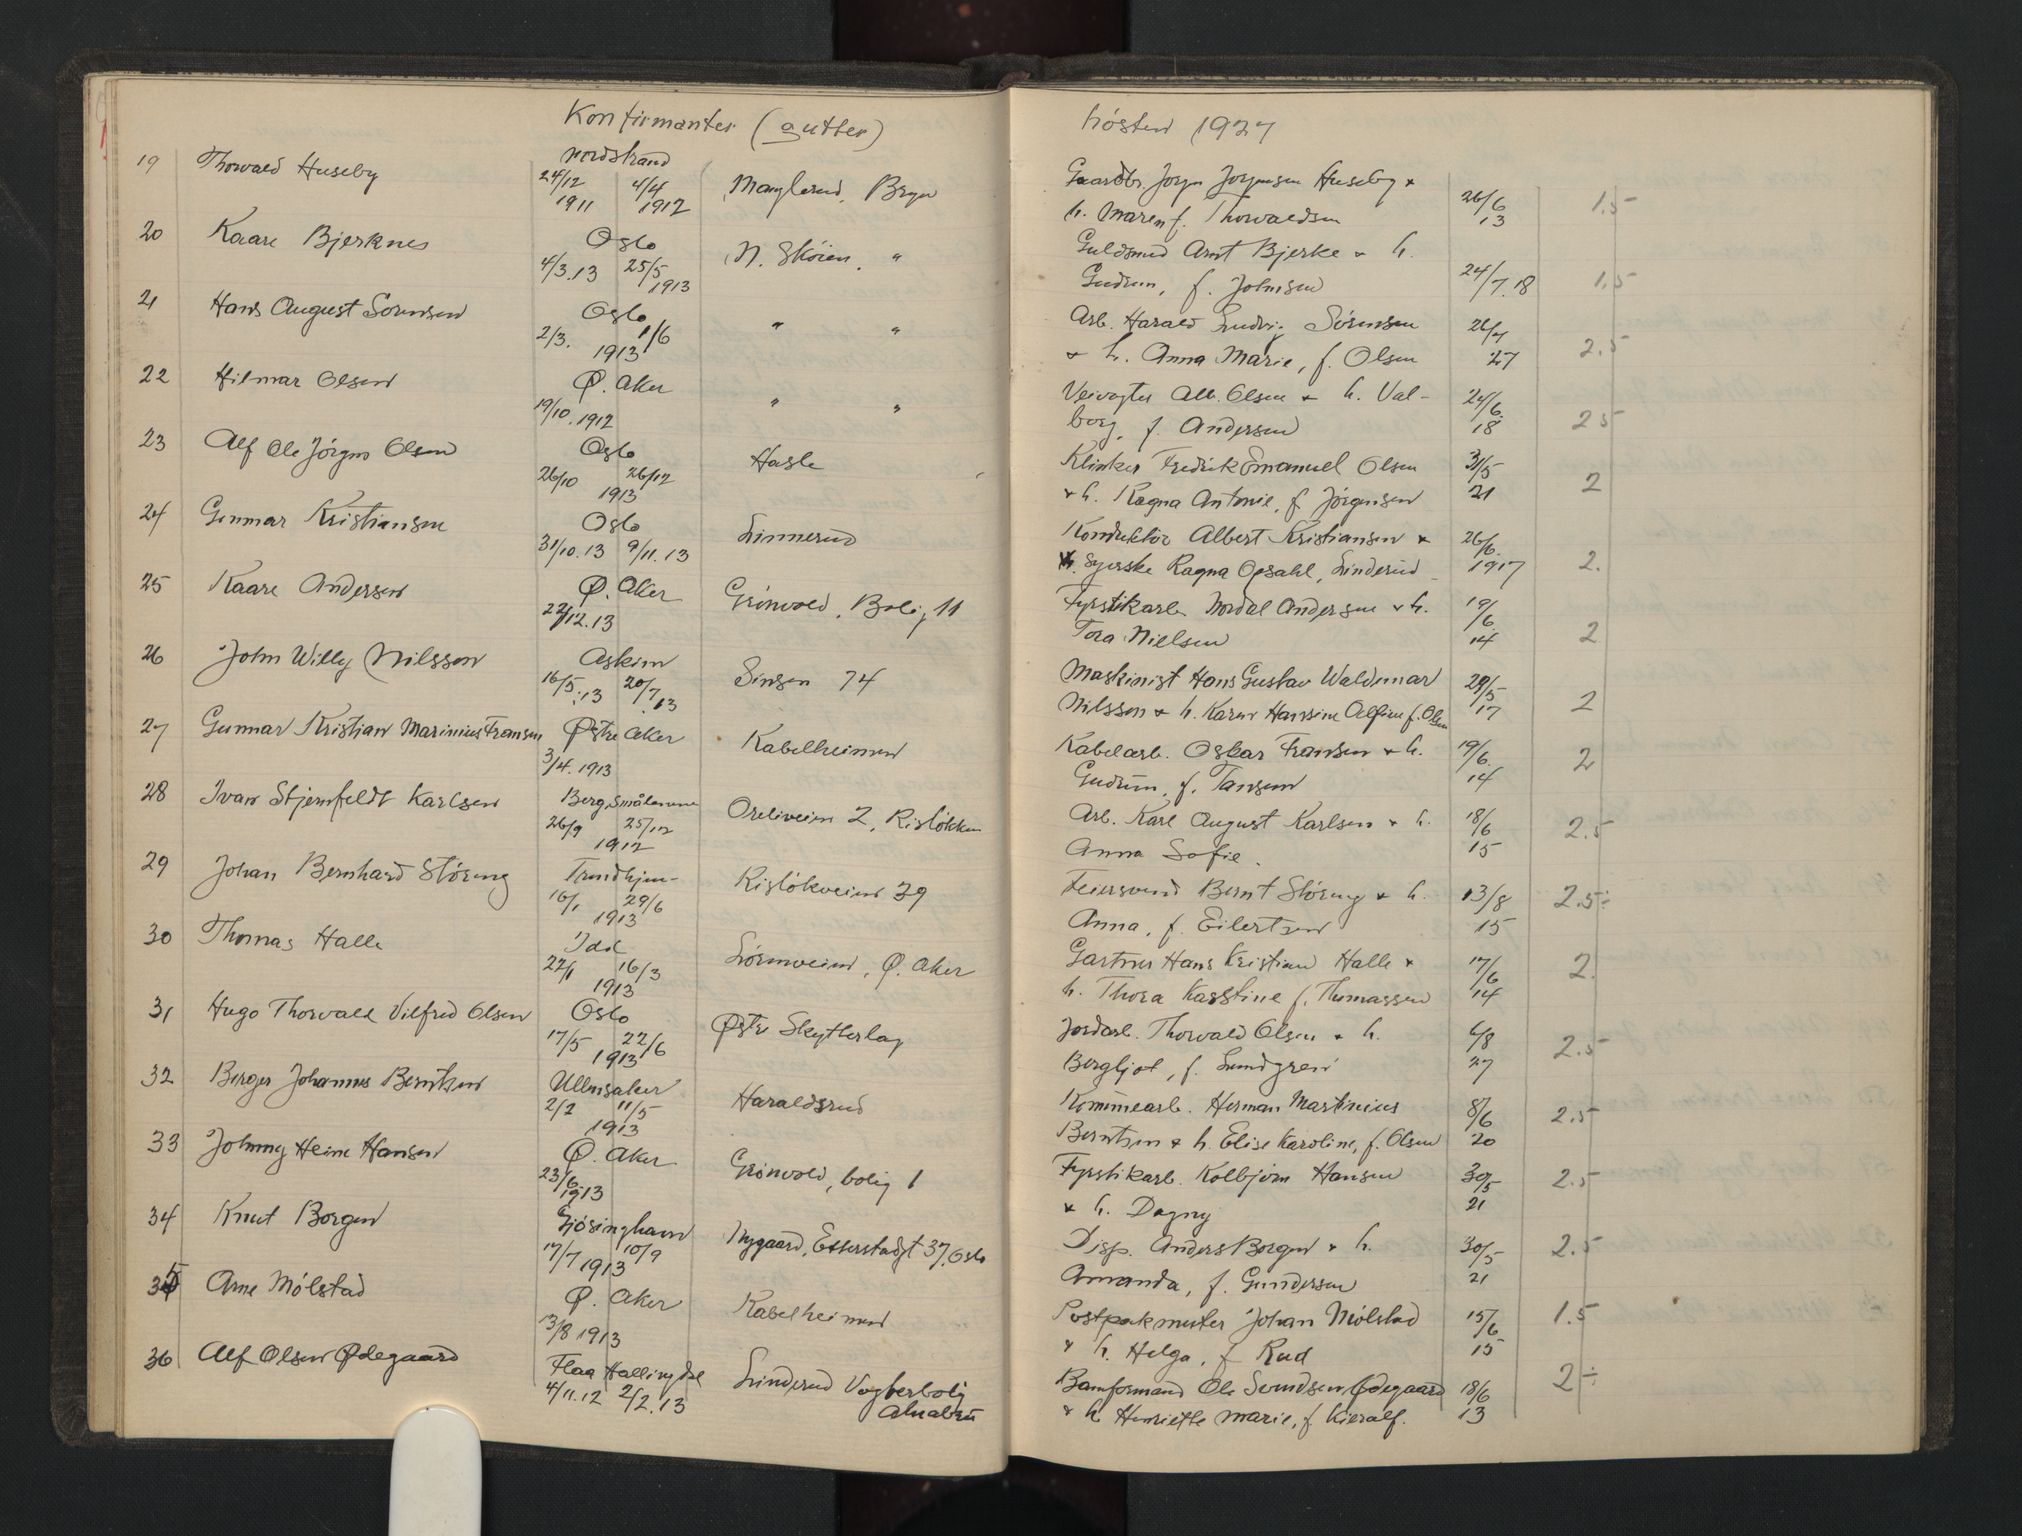 Konfirmanter (gutter) høsten 1927
19 Thorvald Huseby Nordstrand 24/12 1911 4/4 1912 Manglerud, Bryn Gaardbr. Jørgen Jørgensen Huseby &
h. Maren f. Thorvaldsen 26/6 13 1.5
20 Kaare Bjerknes Oslo 4/3.13 25/5 1913 N. Skøien, " Guldsmed Arnt Bjerke & h.
Gudrun, f. Johnsen 24/7.18 1.5
21 Hans August Sørensen Oslo 2/3. 1/6 1913 " " Arb. Harald Ludvig Sørensen
& h. Anna Marie, f. Olsen 27 2.5
22 Hilmar Olsen Ø. Aker 19/10.1912 " " Veivogter Alb. Olsen & h. Val-
borg, f. Andersen 24/6. 18 2 5
23 Alf Ole Jørgen Olsen Oslo 26/10 26/12 1913 Hasle Klinker Fredrik Emanuel Olsen
& h. Ragna Antonie, f. Jørgensen 31/5 21 2
24 Gunnar Kristiansen Oslo 31/10.13 9/11.13 Linnerud Konduktör Albert Kristiansen &
Syerske Ragna Opsahl, Linderud 26/6. 1917 2.
25 Kaare Andersen Ø. Aker 22/12.13 Grönvold, Bolig 11 Fyrstikarb. Nordal Andersen & h.
Tora Nielsen 19/6. 14 2
26 John Willy Nilsson Askim 16/5.13 20/7.13 Sinsen 74 Maskinist Hans Gustav Waldemar
Nilsson & h. Karen Hansine Alfine f. Olsen 29/5 17 2
27 Gunnar Kristian Marinius Fransen Østre Aker 3/4.1913 Kabelheimen Kabelarb. Oskar Fransen & h.
Gudrun, f. Tansem 19/6. 14 2
28 Ivar Stjernfeldt Karlsen Berg, Smålenene 26/9 25/12 1912 Oreliveien 2, Risløkken Arb. Karl August Karlsen & h.
Anna Sofie. 18/6 15 2.5
29 Johan Bernhard Støreng Trondhjem- 16/1 29/6 1913 Risløkveien 39 Feiersvend Bernt Støreng & h.
Anna, f. Eilertsen 13/8 15 2.5÷
30 Thomas Halle Idd 22/1 16/3 1913 Lørenveien, Ø. Aker Gartner Hans Kristian Halle &
h. Thora Kasstine f. Thomassen 17/6 14 2
31 Hugo Thorvald Vilfred Olsen Oslo 17/5 22/6 1913 Østre Skytterlag Jordarb. Thorvald Olsen & h.
Bergljot, f. Lundgren 6/8 27 2.5
32 Berger Johannes Berntsen Ullensaker 2/2 11/5 1913 Haraldsrud Kommearb. Herman Martinius
Berntsen & h. Elise Karoline, f. Olsen 8/6 20 2.5
33 Johnny Heine Hansen Ø. Aker 23/6. 1913 Grönvold, bolig 1 Fyrstikarb. Kolbjörn Hansen
& h. Dagny 30/5 21 2.5
34 Knut Borgen Gjøsinghavn 17/7 10/9 1913 Nygaard, Etterstadgt 37, Oslo Disp. Anders Borgen & h.
Amanda, f. Gundersen 30/5 21 2.5
35 Arne Mølstad Ø. Aker 13/8 1913 Kabelheimen Postpakmester Johan Mølstad
& h. Helga, f. Rud 15/6 15 1.5
36 Alf Olsen Ødegaard Flaa Hallingdal 4/11.12 2/2.13 Linderud Vogterbolig
Alnabru Banformand Ole Svendsen Ødegaard
& h. Henriette Marie, f. Kieralf. 18/6 13 2÷